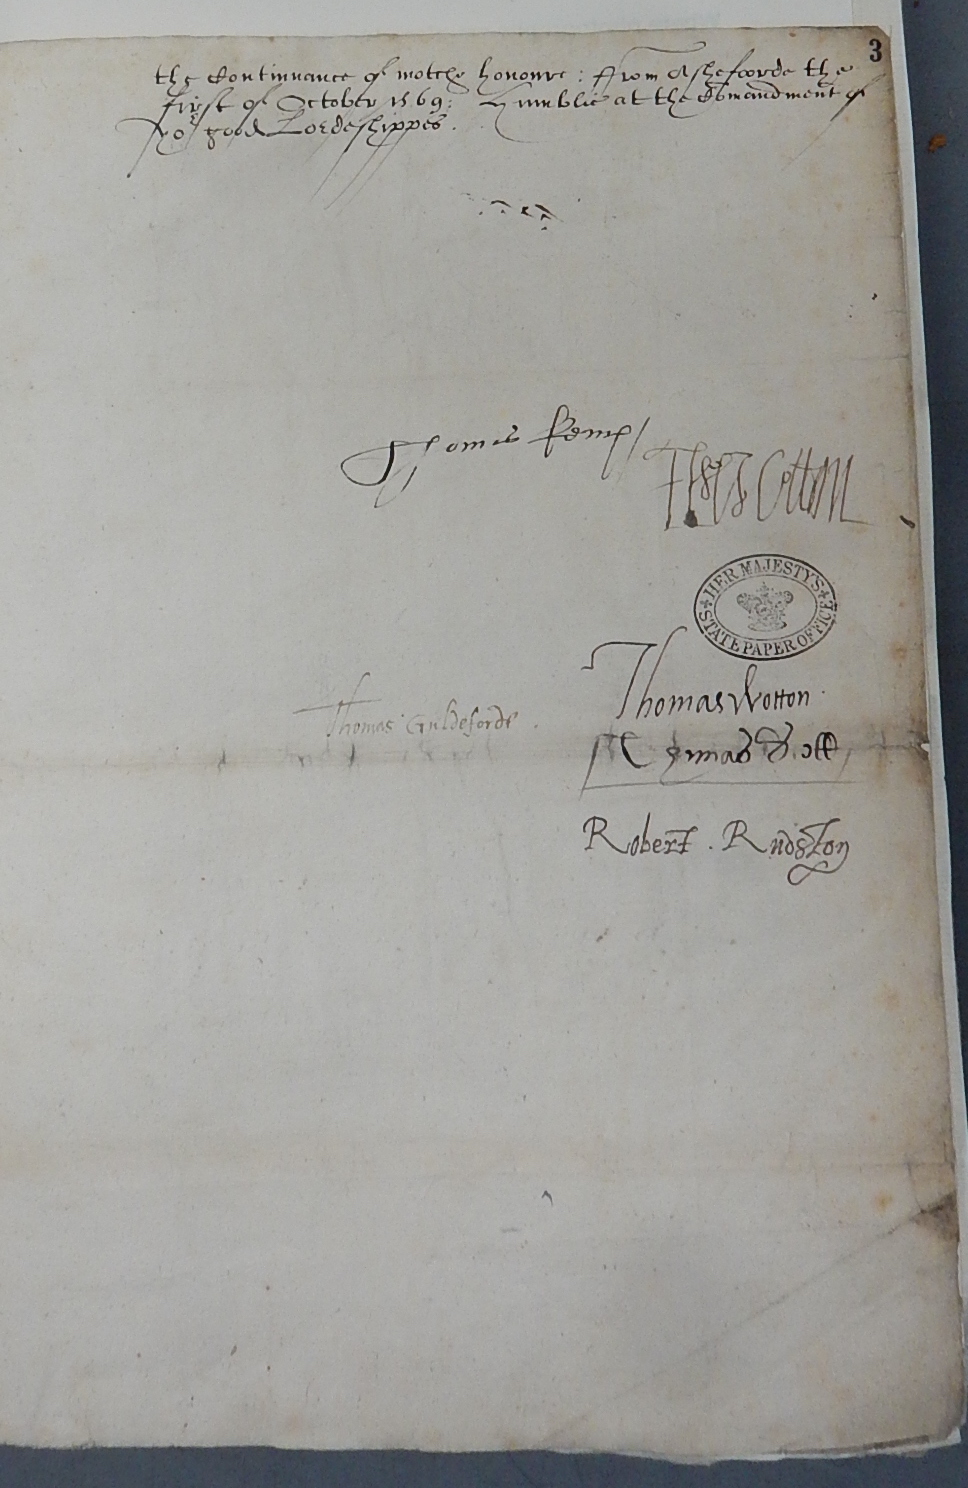 3
the contynuance of moche honoure : ffrom Asheforde the
first of October 1569 : humblie at the comandment of
yor good Lordeshippes .
Thomas Kemp
Thomas Cotton
HER MAJESTY'S
STATE PAPER OFFICE
Thomas Wotton
Thomas Guldeforde .
Thomas Scott
Robert . Rudston